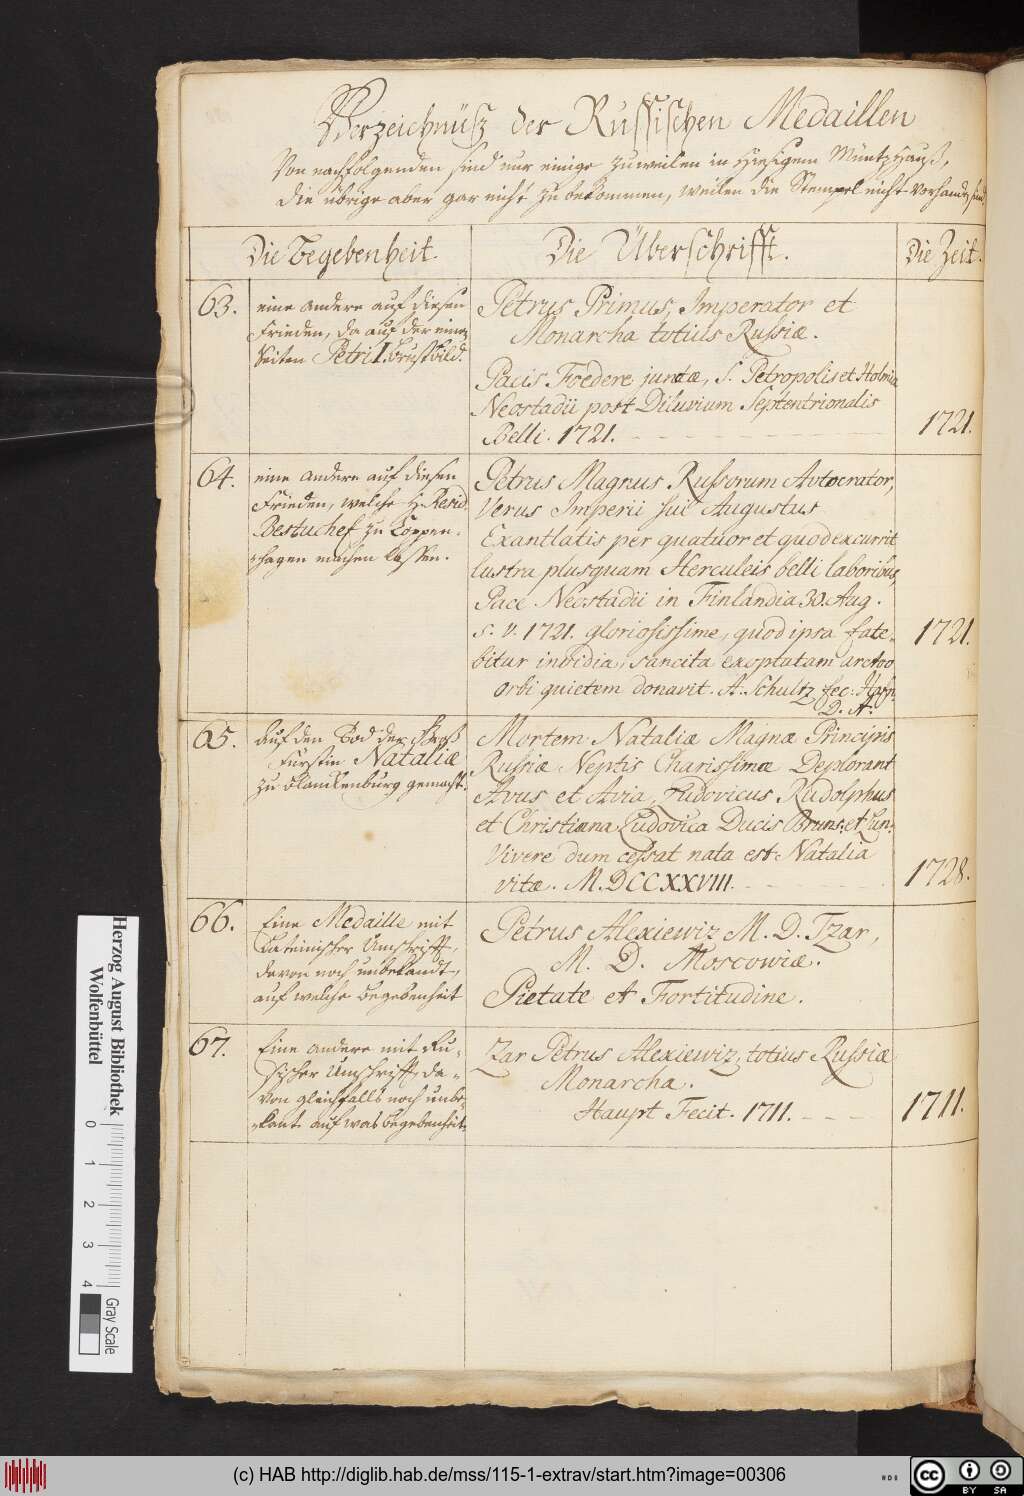 Verzeichnüß der Russischen Medaillen
Von nachfolgenden sind nur einige zuweilen in hiesigem Müntzhauß,
die übrige aber gar nicht zu bekommen, weilen die Stempel nicht vorhanden sind
Die Begebenheit. Die Überschrifft. Die Zeit.
63. eine andere auf diesen
Frieden, da auf der einen
Seiten Petri I. Brustbild.
Petrus Primus, Imperator et
Monarcha totius Russiæ.
Pacis Foedere juncta, S. Petropolis et Holmia
Neostadii post Diluvium Septentrionalis
Belli. 1721.
1721.
64. eine andere auf diesen
Frieden, welche H. Resid.
Bestuchef zu Coppen-
hagen machen lassen.
Petrus Magnus Russorum Avtocrator,
Verus Imperii sui Augustus
Exantlatis per quatuor et quod excurrit
lustra plusquam Herculeis belli laboribus,
Pace Neostadii in Finlandia 30. Aug.
s. v. 1721. gloriosissime, quod ipsa fate-
bitur invidia, sancita exoptatam arctoo
orbi quietem donavit. A. Schultz fec: Hafn.
D. A.
1721.
65. Auf den Tod der Groß
Fürstin Nataliæ
zu Blanckenburg gemacht.
Mortem Nataliæ Magnæ Principis
Russiæ Neptis Charissimæ Deplorant
Avus et Avia, Ludovicus Rudolphus
et Christiana Ludovica Ducis Bruns: et Lun:
Vivere dum cessat nata est Natalia
vitæ. M.DCCXXVIII.
1728.
66. Eine Medaille mit
Lateinischer Umschrifft,
davon noch unbekandt,
auf welche Begebenheit
Petrus Alexiewiz M. D. Tzar,
M. D. Moscowiæ.
Pietate et Fortitudine.
67. Eine andere mit Ru-
sischer Umschrifft, da-
von gleichfalls noch unbe-
kant auf was Begebenheit.
Zar Petrus Alexiewiz, totius Russiæ
Monarcha.
Haupt Fecit. 1711.
1711.
Herzog August Bibliothek
Wolfenbüttel
0 1 2 3 4
Gray Scale
(c) HAB http://diglib.hab.de/mss/115-1-extrav/start.htm?image=00306
cc BY SA